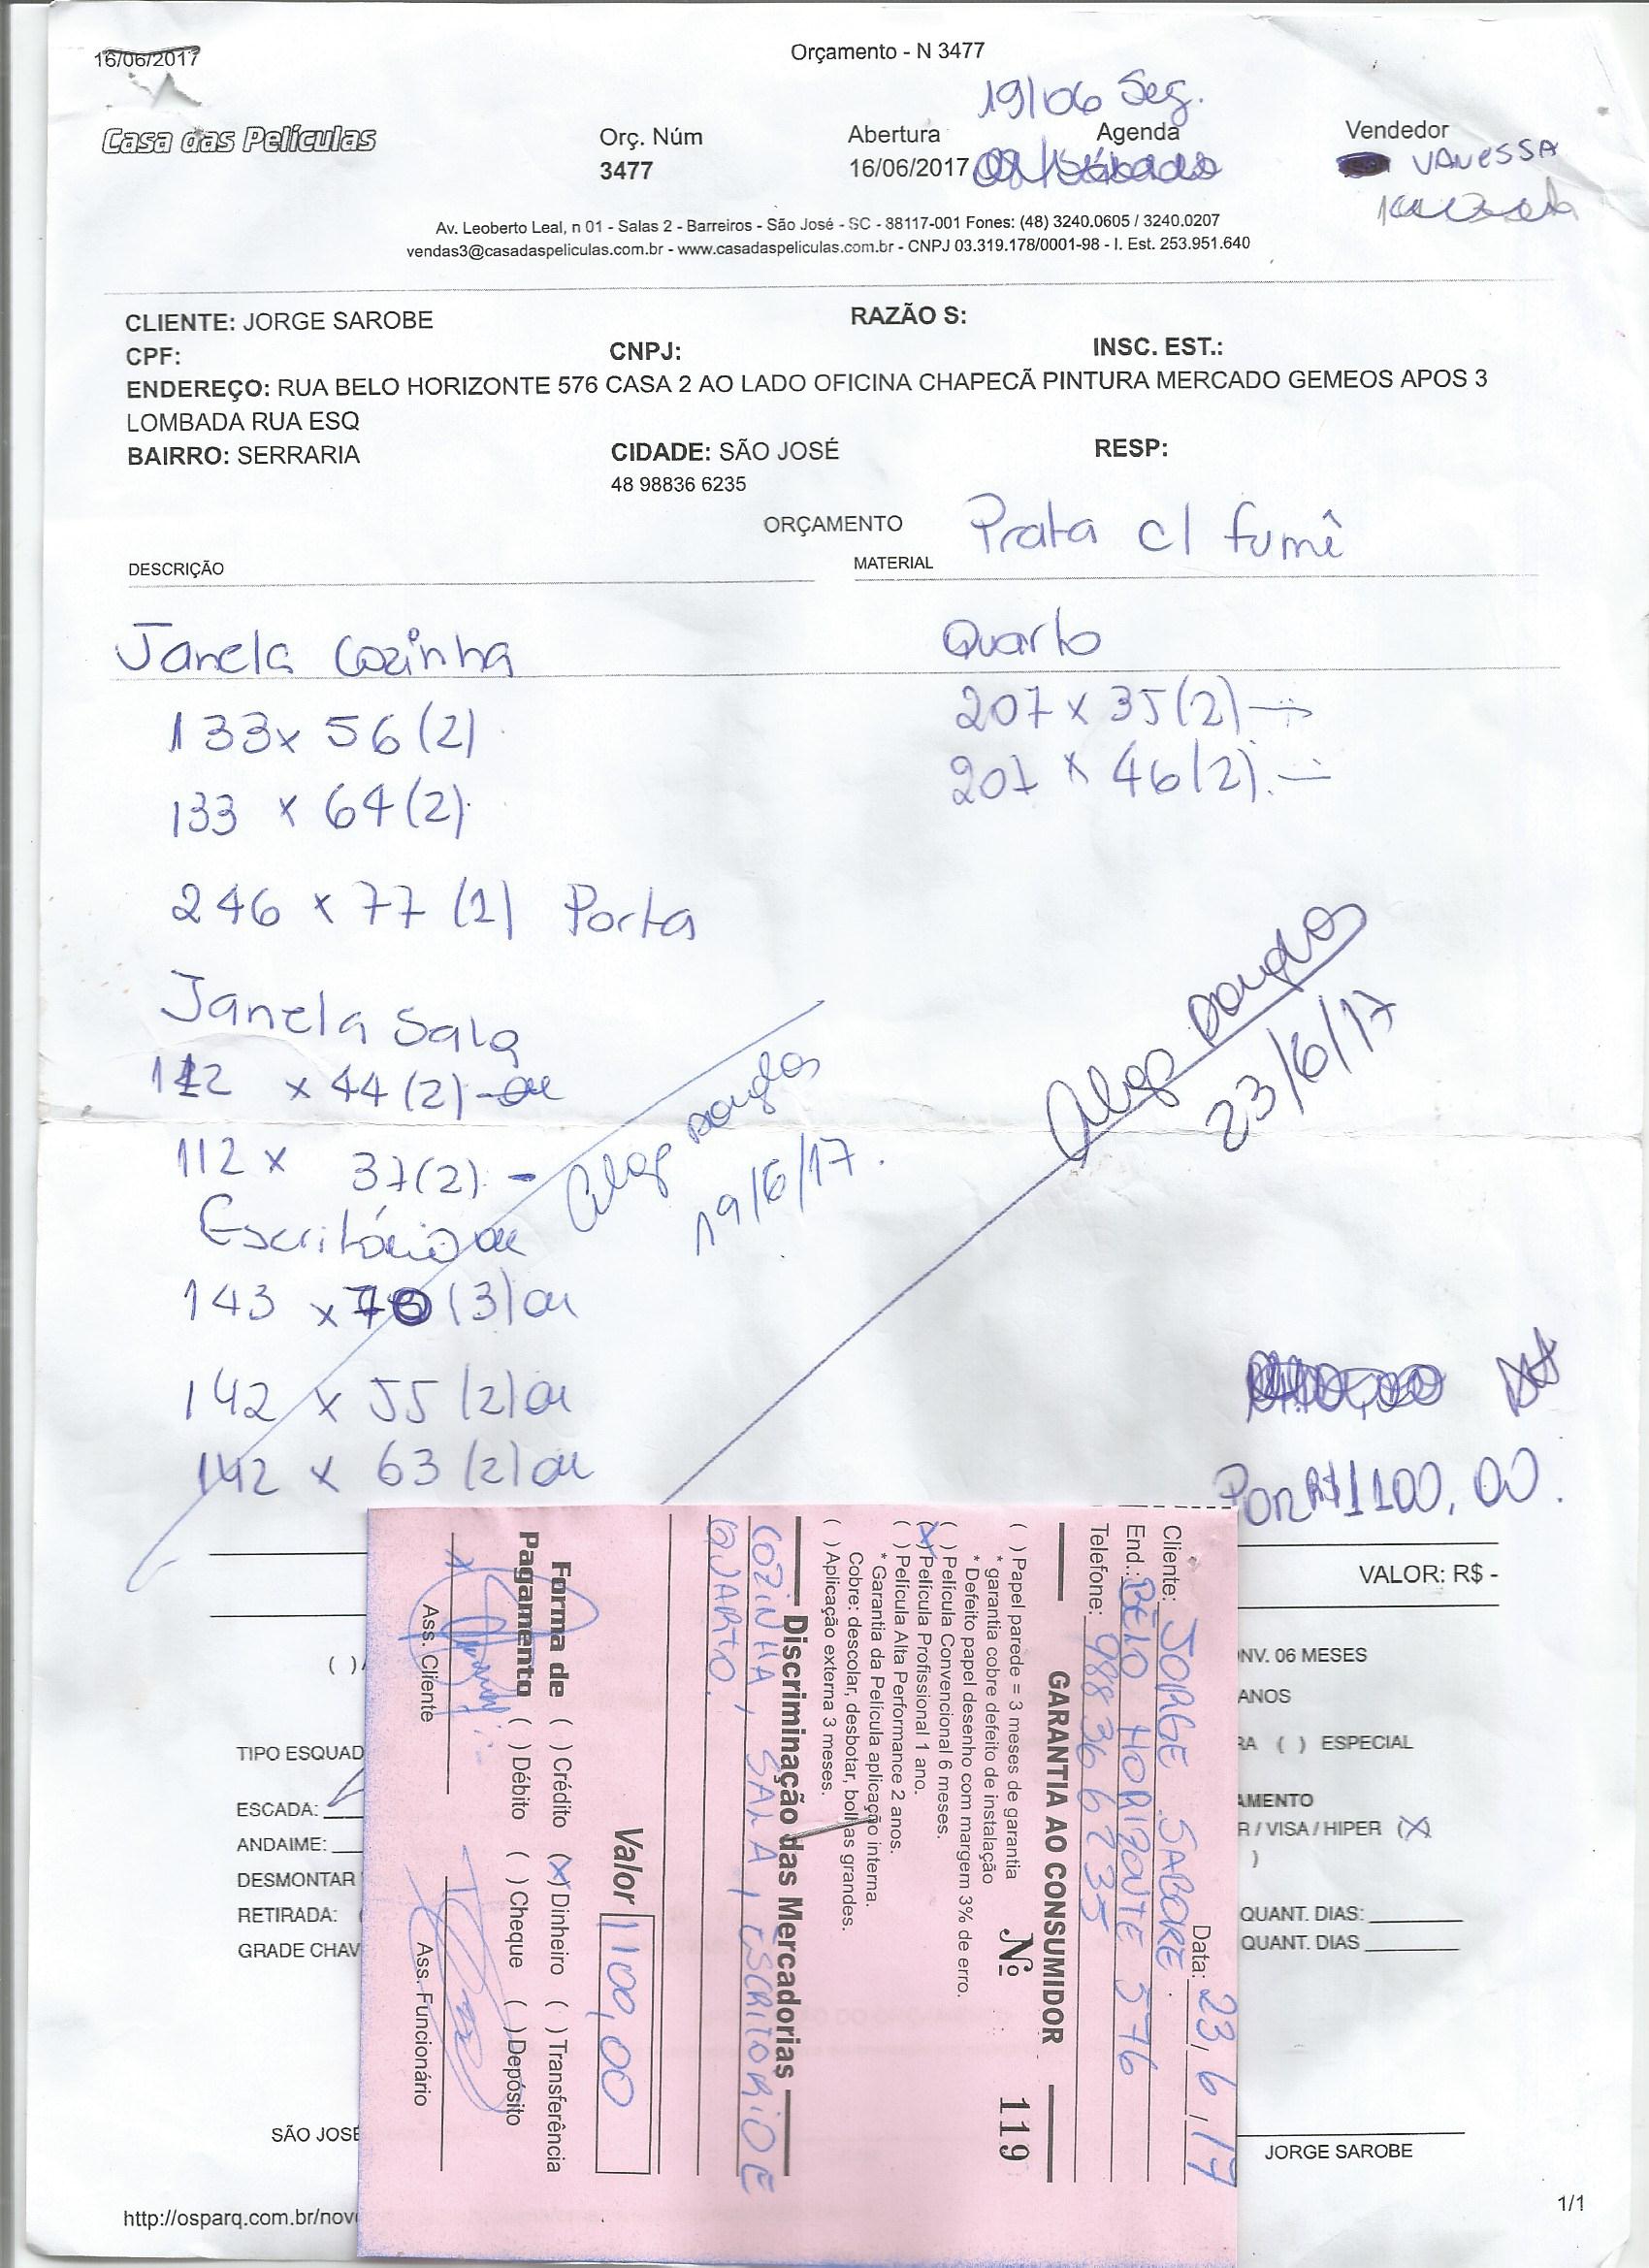 16/06/2017
Orçamento - N 3477
19/06 Seg.
Casa das Películas
Orç. Núm
Abertura
Agenda
Vendedor
3477
16/06/2017
VANESSA
Av. Leoberto Leal, n 01 - Salas 2 - Barreiros - São José - SC - 88117-001 Fones: (48) 3240.0605 / 3240.0207
vendas3@casadaspeliculas.com.br - www.casadaspeliculas.com.br - CNPJ 03.319.178/0001-98 - I. Est. 253.951.640
CLIENTE: JORGE SAROBE
RAZÃO S:
CPF:
CNPJ:
INSC. EST.:
ENDEREÇO: RUA BELO HORIZONTE 576 CASA 2 AO LADO OFICINA CHAPECÃ PINTURA MERCADO GEMEOS APOS 3
LOMBADA RUA ESQ
BAIRRO: SERRARIA
CIDADE: SÃO JOSÉ
RESP:
48 98836 6235
ORÇAMENTO
Prata c/ fumê
DESCRIÇÃO
MATERIAL
Janela Cozinha
133x 56 (2)
133 x 64 (2)
246 x 77 (1) Porta
Janela Sala
112 x 44 (2)
112 x 37 (2)
Escritório
143 x 70 (3)
142 x 55 (2)
142 x 63 (2)
Quarto
207 x 35 (2)
207 x 46 (2)
19/6/17.
23/6/17
Por R$ 1100,00.
VALOR: R$ -
( )
NV. 06 MESES
ANOS
RA ( ) ESPECIAL
TIPO ESQUAD
ESCADA:
ANDAIME:
DESMONTAR
RETIRADA:
GRADE CHAV
AMENTO
R / VISA / HIPER (X)
)
QUANT. DIAS:
QUANT. DIAS
SÃO JOSÉ
JORGE SAROBE
http://osparq.com.br/nov
1/1
Data: 23, 6, 17
Cliente: JORGE SABORE
End.: BELO HORIZONTE 576
Telefone: 988366235
GARANTIA AO CONSUMIDOR
Nº 119
( ) Papel parede = 3 meses de garantia
* garantia cobre defeito de instalação
* Defeito papel desenho com margem 3% de erro.
( ) Película Convencional 6 meses.
(X) Película Profissional 1 ano.
( ) Película Alta Performance 2 anos.
* Garantia da Película aplicação interna.
Cobre: descolar, desbotar, bolhas grandes.
( ) Aplicação externa 3 meses.
Discriminação das Mercadorias
COZINHA, SALA, ESCRITORIO E
QUARTO.
Valor 1100,00
Forma de Pagamento
( ) Crédito (X) Dinheiro ( ) Transferência
( ) Débito ( ) Cheque ( ) Depósito
Ass. Cliente
Ass. Funcionário